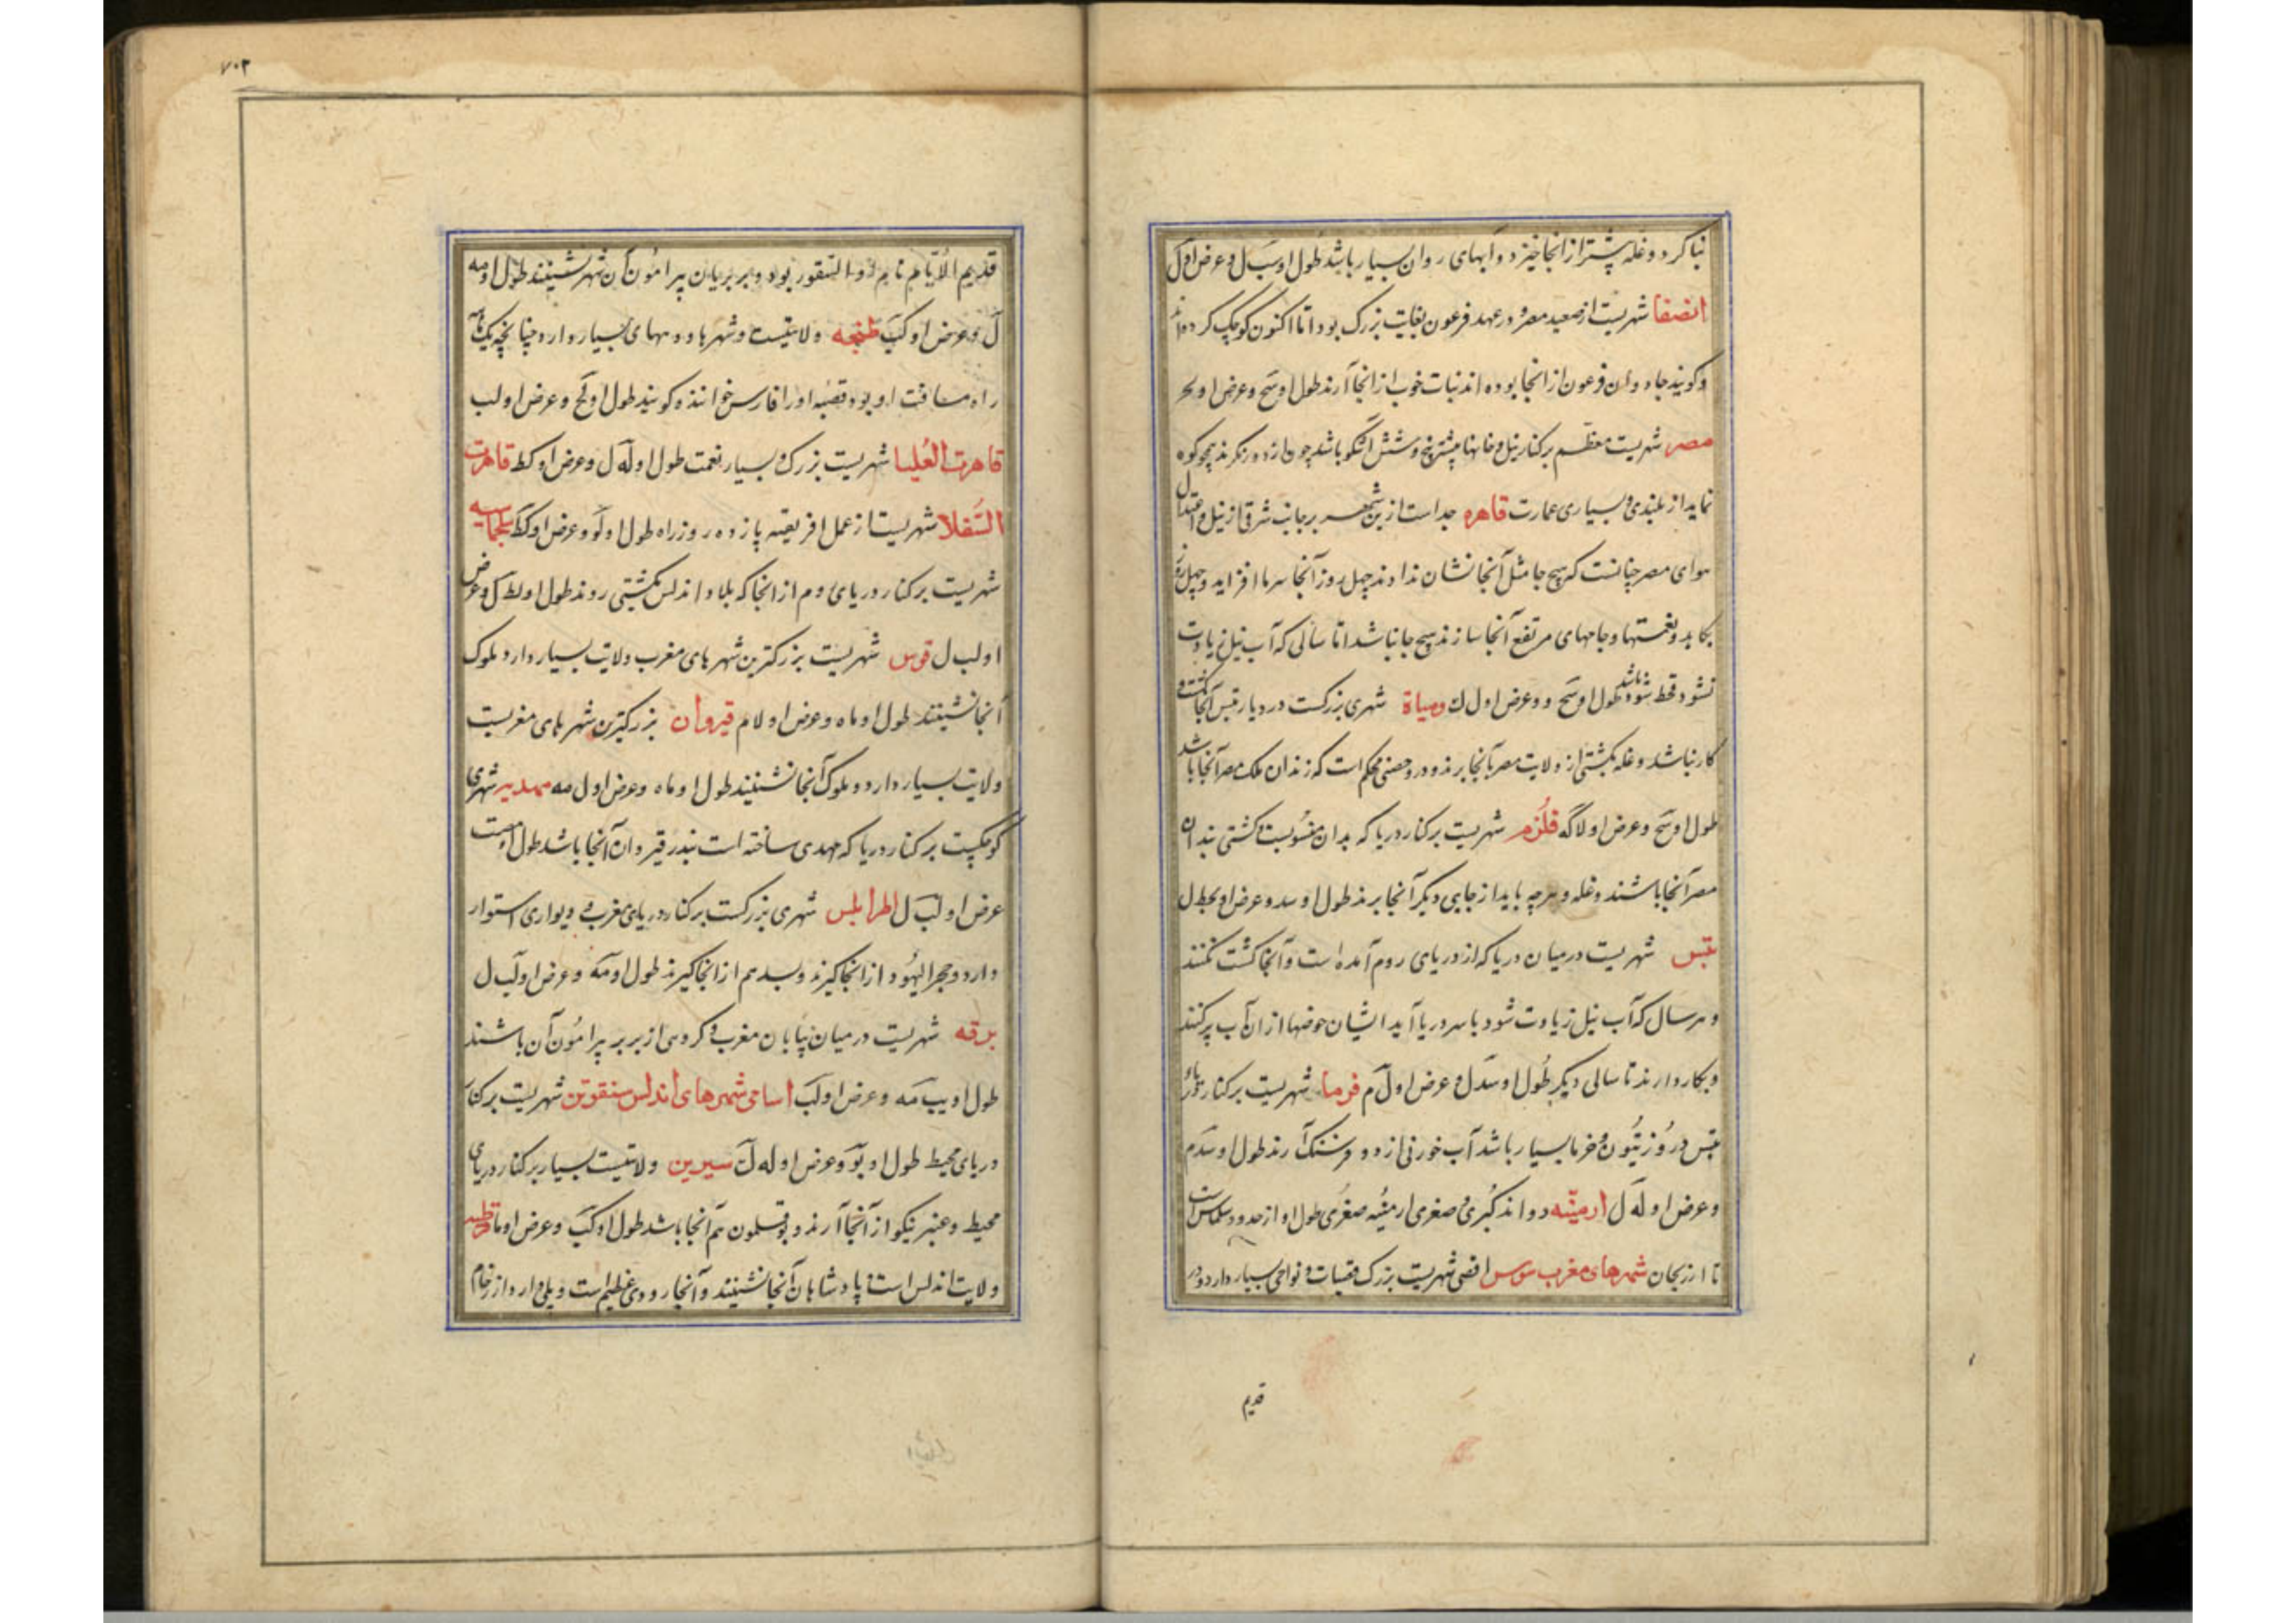 بنا کرد و غله پشتر از انجا خیزد و آبهای روان بسیار باشد طول او سَب ل و عرض او ل
انصفا شهریست از صعید مصر و در عهد فرعون بغایت بزرک بود اما اکنون کوچک کرده اند
و کویند جادوان فرعون از انجا بوده اند نبات خوب از انجا آرند طول او سَح و عرض او لح
مصر شهریست معظم بر کنار نیل و خانها بیشتر پنج و شش اشکو باشد چون از دور نکرند همچو کوه
نماید از بلندی و بسیاری عمارت قاهره جداست ازین شهر بر جانب شرقی از نیل و اعتدال
هوای مصر چنانست که هیچ جا مثل آنجا نشان ندادند چهل روز آنجا سرما افزاید و چهل روز
بکاهد و نعمتها و جامهای مرتفع آنجا سازند هیچ جا نباشد اما سالی که آب نیل زیادت
نشود قحط شود باشد طول او سَح و عرض او ل ك ومیاة شهری بزرکست در دیار تبس آنجا کشت و
کار نباشد و غله بکشتی از ولایت مصر بآنجا برند و درو حصنی محکم است که زندان ملک مصر آنجا باشد
طول او سَح و عرض او لاکَه قلزم شهریست بر کنار دریا که بدان منسوبست و کشتی بندان
مصر آنجا باشند و غله و هرچه باید از جایی دیکر آنجا برند طول او سد و عرض او بحط ل
تبس شهریست در میان دریا که از دریای روم آمده است و آنجا کشت نکنند
و هر سال که آب نیل زیادت شود با سر دریا آید ایشان حوضها از ان آب پر کنند
و بکار دارند تا سالی دیکر طول او سَد ل و عرض او ل م فرما شهریست بر کنار دریاء
تبس درو زیتون و خرما بسیار باشد آب خوردنی از دو فرسنک آرند طول او سَد م
و عرض او لَه ل ارمنیّه دو اند کبری و صغری ارمنیه صغری طول او از حدود سلماس است
تا ارزنجان شهرهای مغرب سوس اقصی شهریست بزرک قصبات و نواحی بسیار دارد و در
قدیم
۷۰۳
قدیم الایام نام او النقور بود و بربریان پیرامون آن شهر نشینند طول او مه
ل و عرض او کَب طنجه ولایتیست و شهرها و دیهای بسیار دارد چنانچه یک ماهه
راه مسافت او بود و قصبه او را فارس خوانند و کویند طول او لَح و عرض او لب
قاهرت العُلیا شهریست بزرک و بسیار نعمت طول او لَه ل و عرض او کط قاهرت
السّفلا شهریست از عمل افریقیه پازده روز راه طول او لَو و عرض او کَط سلجماسه
شهریست بر کنار دریای روم از انجا که بلاد اندلس بکشتی روند طول او لط ل و عرض
او لب ل قوس شهریست بزرکترین شهرهای مغرب ولایت بسیار دارد و ملوک
آنجا نشینند طول او ماه و عرض او لام قیروان بزرکترین شهرهای مغربست
ولایت بسیار دارد و ملوک آنجا نشینند طول او ماه و عرض او ل مه مهدیه شهری
کوچکیست بر کنار دریا که مهدی ساخته است بندر قیروان آنجا باشد طول او مب
عرض او لبَ ل اطرابلس شهری بزرکست بر کنار دریای مغرب و دیواری استوار
دارد و حجر الیهود از انجا کیرند و بسد هم از انجا کیرند طول او مَه و عرض او لَب ل
برقه شهریست در میان بیابان مغرب و کروهی از بربر پیرامون آن باشند
طول او یب مَه و عرض او لب اسامی شهرهای اندلس سنقوتن شهریست بر کنار
دریای محیط طول او یوَ و عرض او له ل سیرین ولایتیست بسیار بر کنار دریای
محیط و عنبر نیکو از آنجا آرند و بوقلمون هم آنجا باشد طول او کَب و عرض او ما قرطبه
ولایت اندلس است و پادشاهان آنجا نشینند و آنجا رودی عظیم است و پلی دارد از رخام